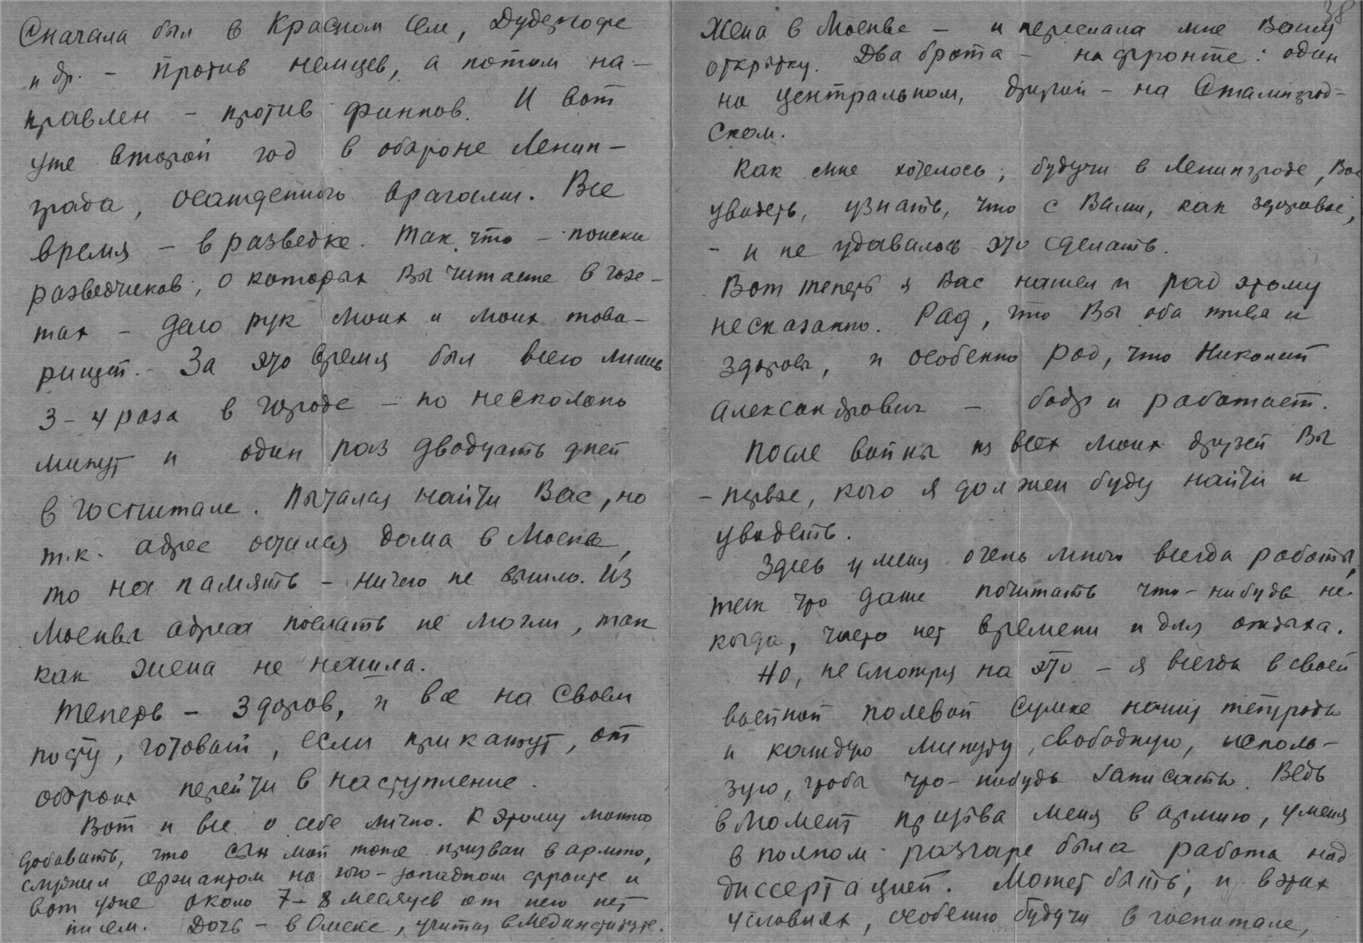 Сначала был в Красном Селе, Дудергофе
и др. – против немцев, а потом на-
правлен – против финнов. И вот
уже второй год в обороне Ленин-
града, осажденного врагами. Все
время – в разведке. Так что – поиски
разведчиков, о которых Вы читаете в газе-
тах – дело рук моих и моих това-
рищей. – За это время был всего лишь
3-4 раза в городе – по несколько
минут и один раз двадцать дней
в госпитале. Пытался найти Вас, но
т.к. адрес остался дома в Москве,
то на память – ничего не вышло. Из
Москвы адреса послать не могли, так
как жена не нашла.
Теперь – здоров, и все на своем
посту, готовый, если прикажут, от
обороны перейти в наступление.
Вот и все о себе лично. К этому можно
добавить, что сын мой тоже призван в армию,
служил сержантом на юго-западном фронте и
вот уже около 7–8 месяцев от него нет
писем. Дочь – в Омске, учится в мединституте.
38
Жена в Москве – и переслала мне Вашу
открытку. Два брата – на фронте: один
на центральном, другой – на Сталинград-
ском.
Как мне хотелось, будучи в Ленинграде, Вас
увидеть, узнать, что с Вами, как здоровье,
– и не удавалось это сделать.
Вот теперь я Вас нашел и рад этому
несказанно. Рад, что Вы оба живы и
здоровы, и особенно рад, что Николай
Александрович – бодр и работает.
После войны из всех моих друзей Вы
– первые, кого я должен буду найти и
увидеть.
Здесь у меня очень много всегда работы,
так что даже почитать что-нибудь не-
когда, часто нет времени и для отдыха.
Но, несмотря на это – я всегда в своей
военной полевой сумке ношу тетрадь
и каждую минуту, свободную, исполь-
зую, чтобы что-нибудь записать. Ведь
в момент призыва меня в армию, у меня
в полном разгаре была работа над
диссертацией. Может быть, и в этих
условиях, особенно будучи в госпитале,